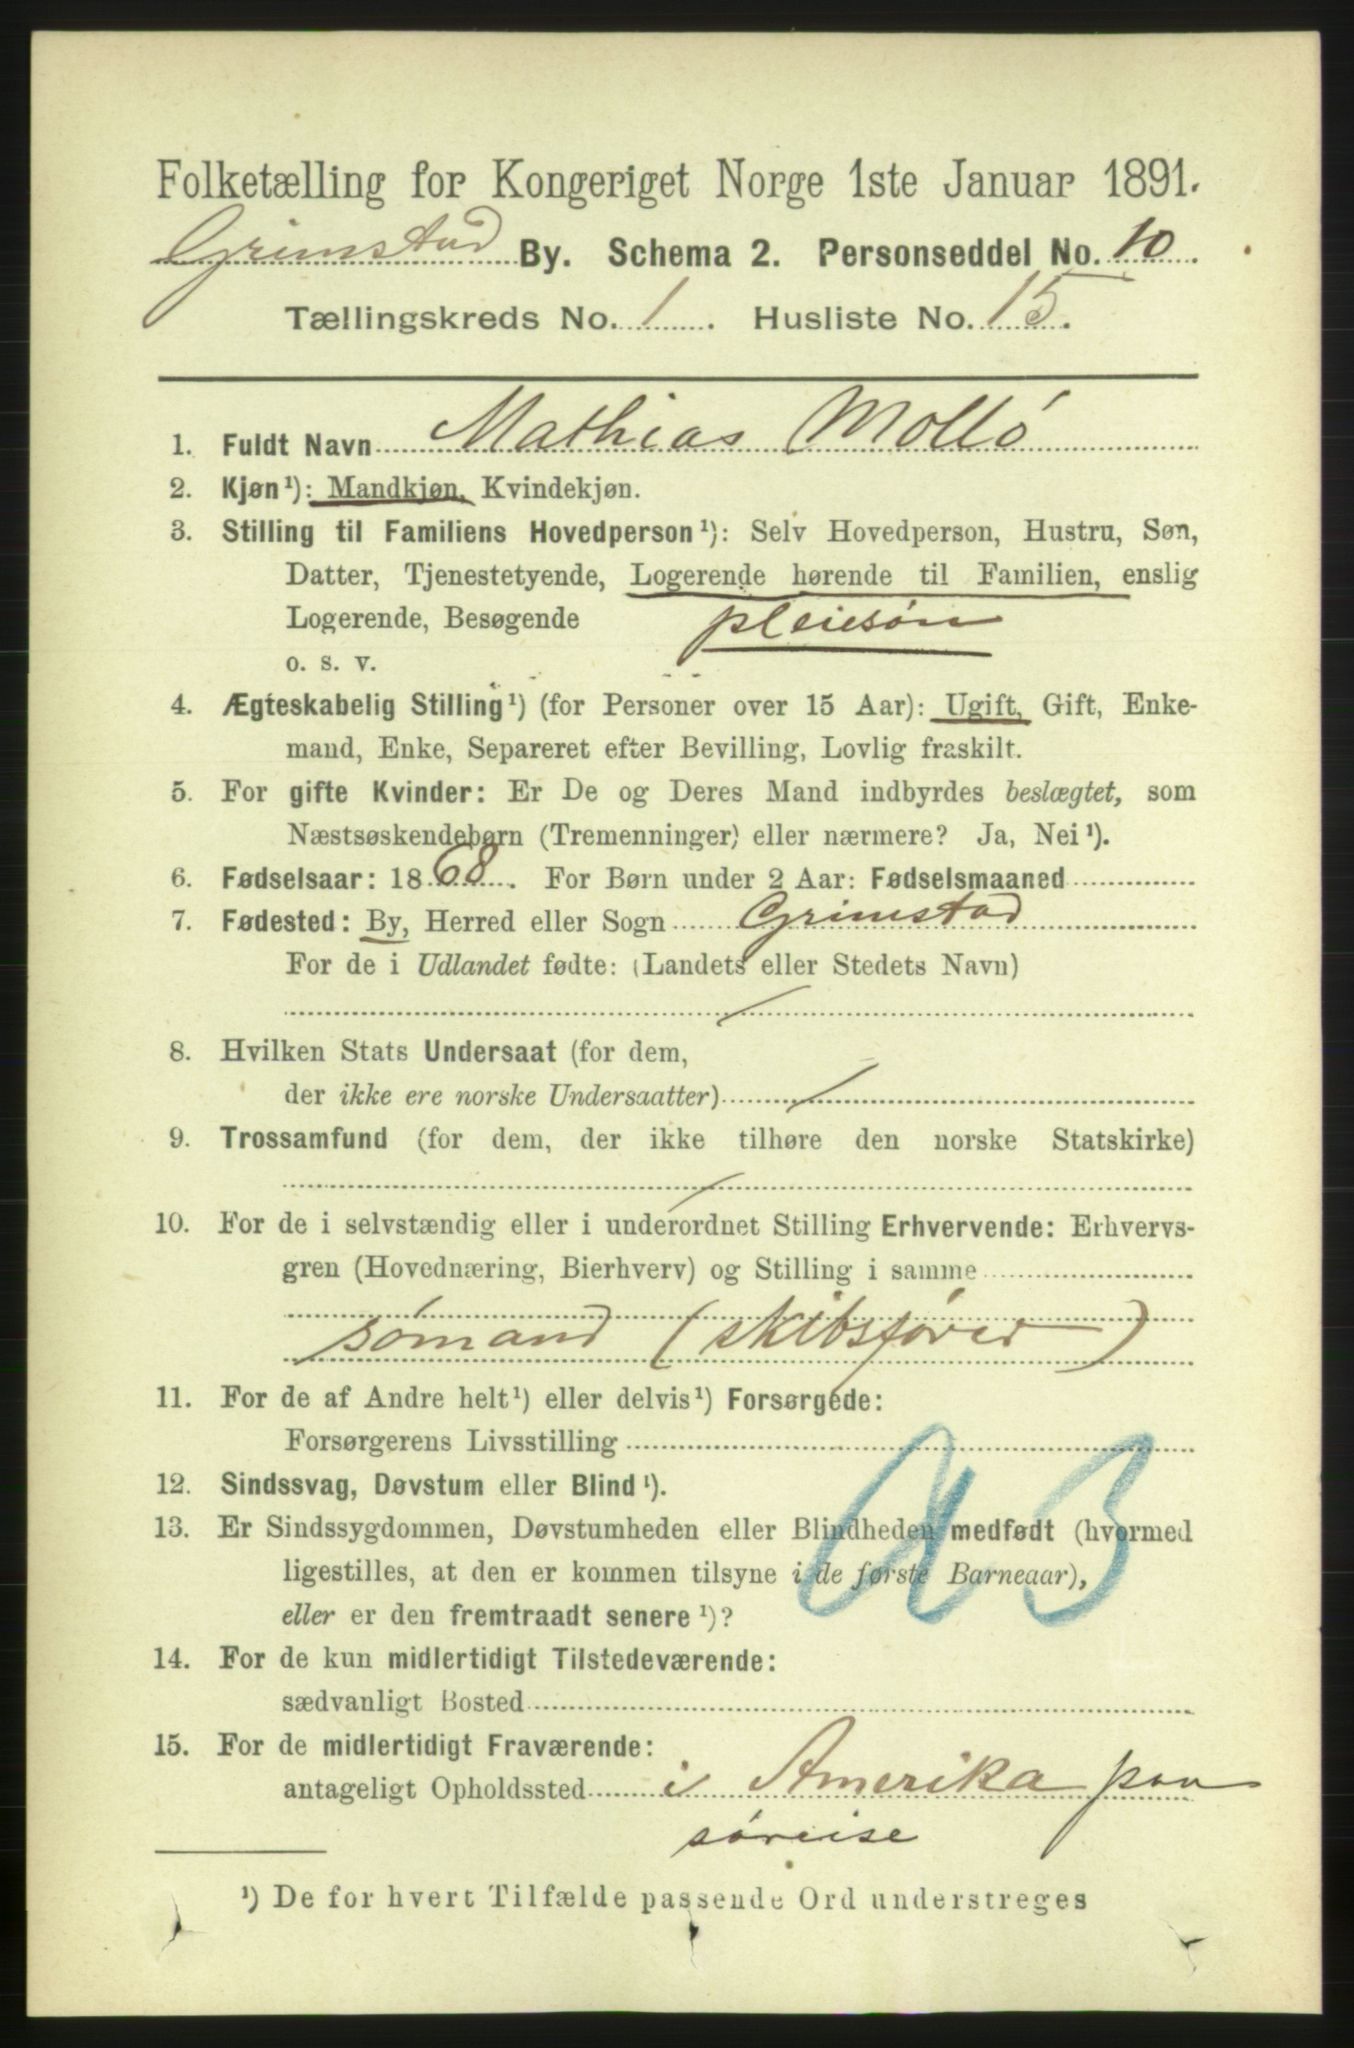 Folketælling for Kongeriget Norge 1ste Januar 1891.
Grimstad By. Schema 2. Personseddel No. 10.
Tællingskreds No. 1. Husliste No. 15.
1. Fuldt Navn Mathias Mollö
2. Kjøn¹): Mandkjøn, Kvindekjøn.
3. Stilling til Familiens Hovedperson¹): Selv Hovedperson, Hustru, Søn,
Datter, Tjenestetyende, Logerende hørende til Familien, enslig
Logerende, Besøgende pleiesøn
o. s. v.
4. Ægteskabelig Stilling¹) (for Personer over 15 Aar): Ugift, Gift, Enke-
mand, Enke, Separeret efter Bevilling, Lovlig fraskilt.
5. For gifte Kvinder: Er De og Deres Mand indbyrdes beslægtet, som
Næstsøskendebørn (Tremenninger) eller nærmere? Ja, Nei¹).
6. Fødselsaar: 1868. For Børn under 2 Aar: Fødselsmaaned
7. Fødested: By, Herred eller Sogn Grimstad
For de i Udlandet fødte: (Landets eller Stedets Navn)
/
8. Hvilken Stats Undersaat (for dem,
der ikke ere norske Undersaatter) /
9. Trossamfund (for dem, der ikke tilhøre den norske Statskirke)
/
10. For de i selvstændig eller i underordnet Stilling Erhvervende: Erhvervs-
gren (Hovednæring, Bierhverv) og Stilling i samme
sömand (skibsförer)
11. For de af Andre helt¹) eller delvis¹) Forsørgede:
Forsørgerens Livsstilling
12. Sindssvag, Døvstum eller Blind¹).
13. Er Sindssygdommen, Døvstumheden eller Blindheden medfødt (hvormed
ligestilles, at den er kommen tilsyne i de første Barneaar),
eller er den fremtraadt senere¹)?
14. For de kun midlertidigt Tilstedeværende:
sædvanligt Bosted
15. For de midlertidigt Fraværende:
antageligt Opholdssted i Amerika paa
söreise
¹) De for hvert Tilfælde passende Ord understreges